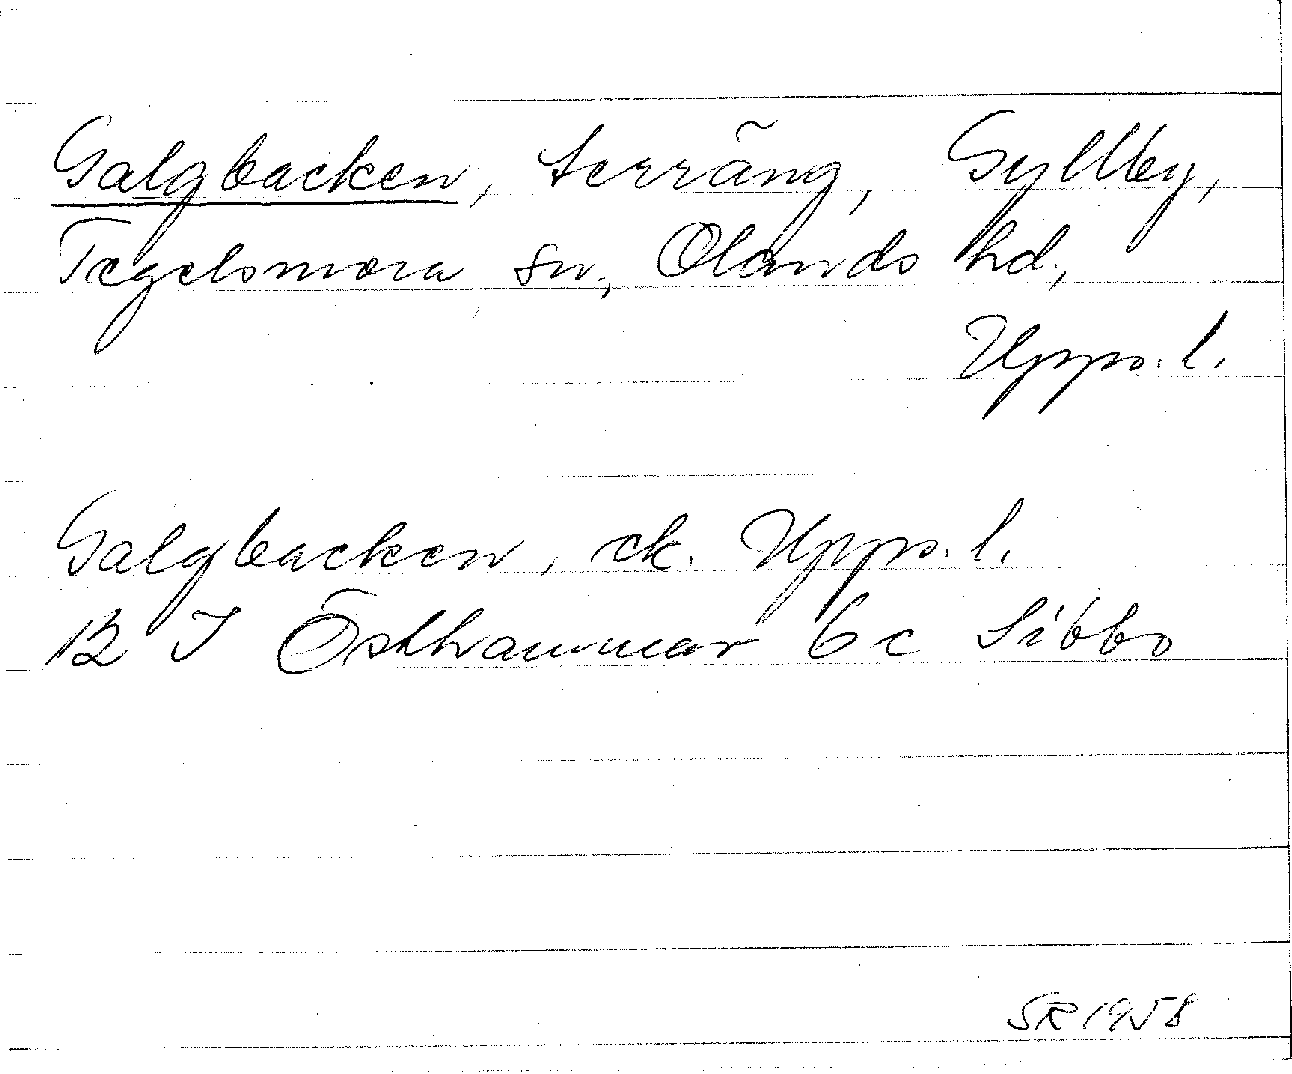 Galgbacken, terräng, Gyllby,
Tegelsmora sn, Olands hd,
Upps. l.
Galgbacken, ek. Upps. l.
12 I Östhammar 6 c Sibbo
SR 1958